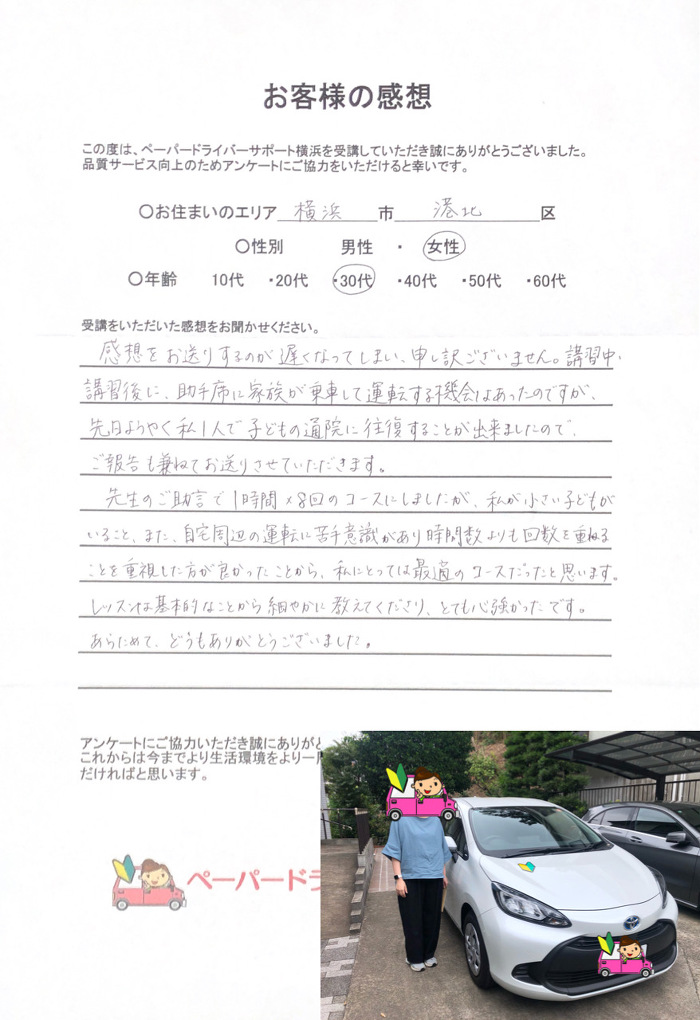 お客様の感想
この度は、ペーパードライバーサポート横浜を受講していただき誠にありがとうございました。
品質サービス向上のためアンケートにご協力をいただけると幸いです。
〇お住まいのエリア 横浜 市 港北 区
〇性別 男性 ・ 女性
〇年齢 10代 ・20代 ・30代 ・40代 ・50代 ・60代
受講をいただいた感想をお聞かせください。
感想をお送りするのが遅くなってしまい、申し訳ございません。講習中、
講習後に、助手席に家族が乗車して運転する機会はあったのですが、
先日ようやく私1人で子どもの通院に往復することが出来ましたので、
ご報告も兼ねてお送りさせていただきます。
先生のご助言で1時間×8回のコースにしましたが、私が小さい子どもが
いること、また、自宅周辺の運転に苦手意識があり時間数よりも回数を重ねる
ことを重視した方が良かったことから、私にとっては最適のコースだったと思います。
レッスンは基本的なことから細やかに教えてくださり、とても心強かったです。
あらためて、どうもありがとうございました。
アンケートにご協力いただき誠にありがと
これからは今までより生活環境をより一
だければと思います。
ペーパードラ